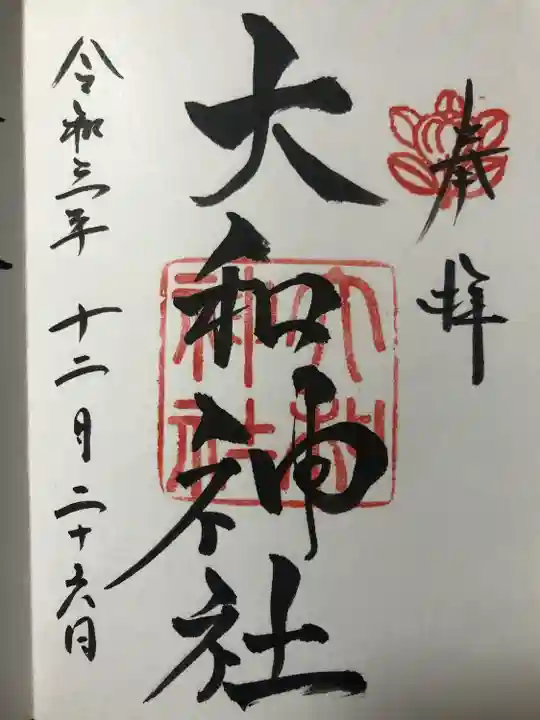 奉拝
大和神社
大和
神社
令和三年 十二月 二十六日